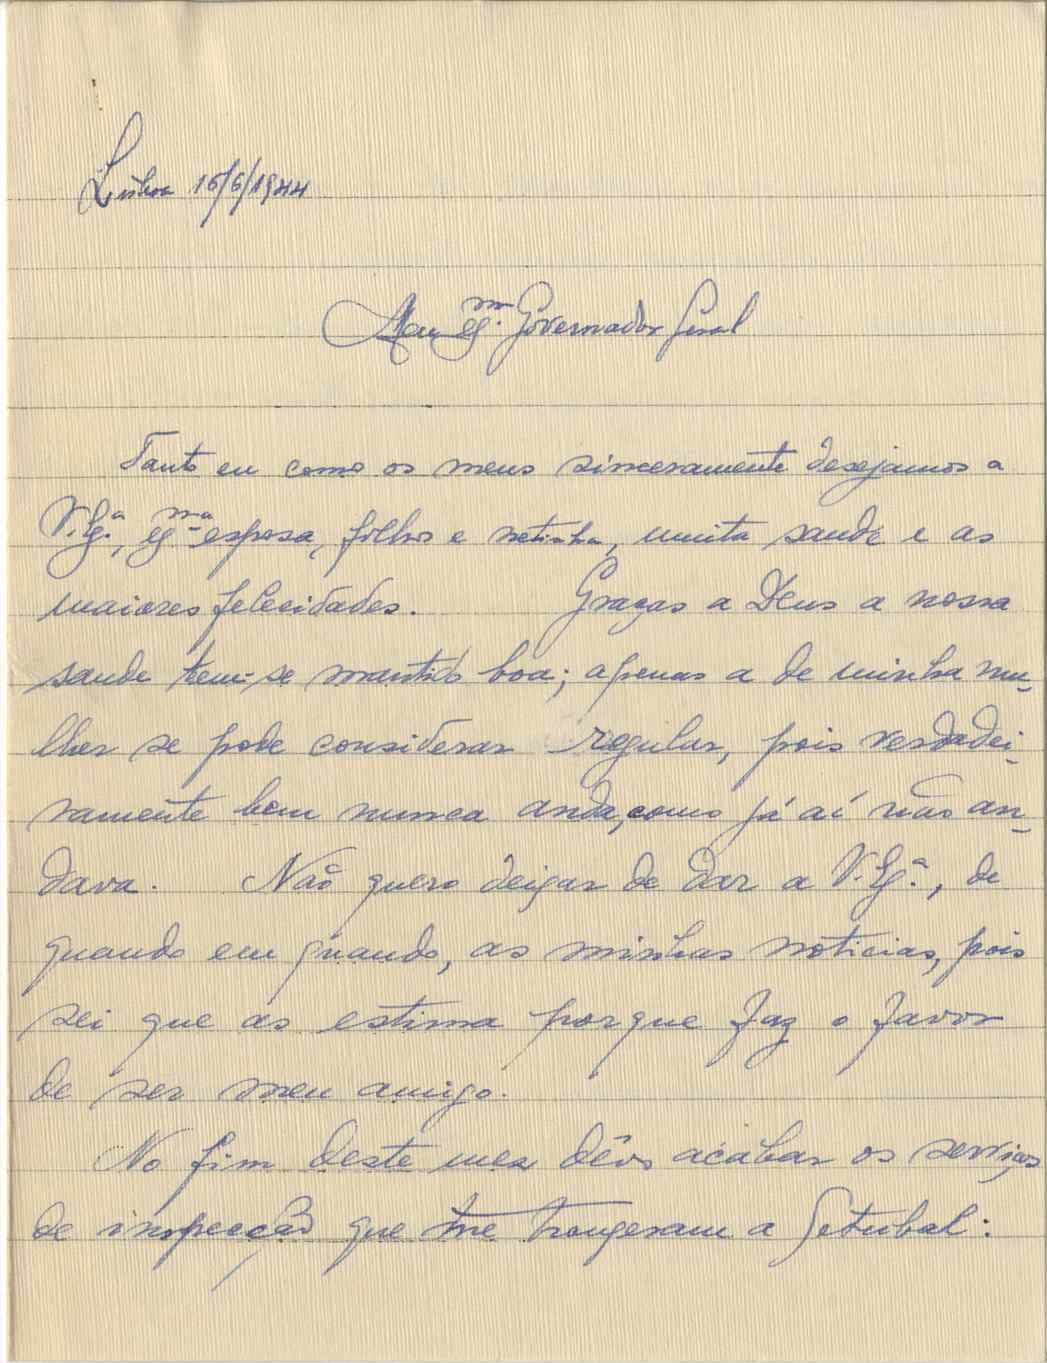 Lisboa 16/6/1944
Meu Exmo. Governador Geral
Tanto eu como os meus sinceramente desejamos a
V. Exª., Exma esposa, filhos e netinha, muita saude e as
maiores felecidades. Graças a Deus a nossa
saude tem-se mantido boa; apenas a de minha mu-
lher se pode considerar regular, pois verdadei-
ramente bem nunca anda, como já aí não an-
dava. Não quero deixar de dar a V. Exª., de
quando em quando, as minhas noticias, pois
sei que as estima porque faz o favor
de ser meu amigo.
No fim deste mez dêvo acabar os serviços
de inspecção que me trouxeram a Setubal: